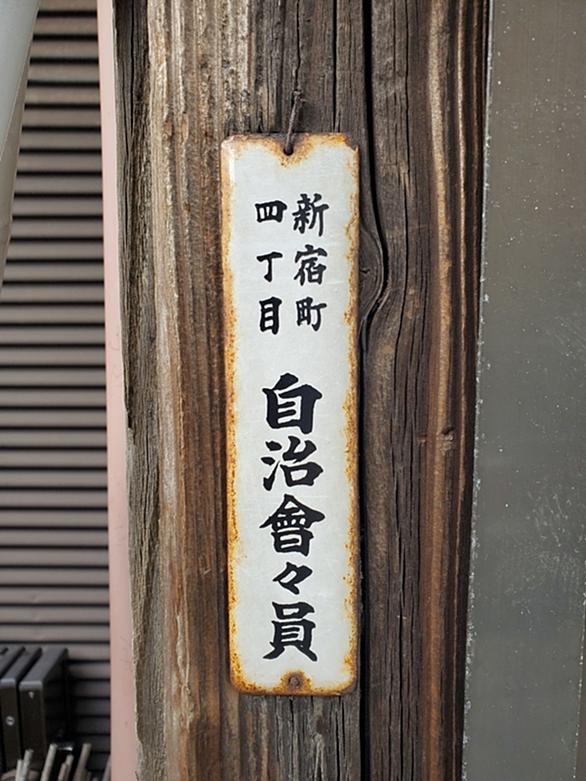 新宿町
四丁目
自治會々員